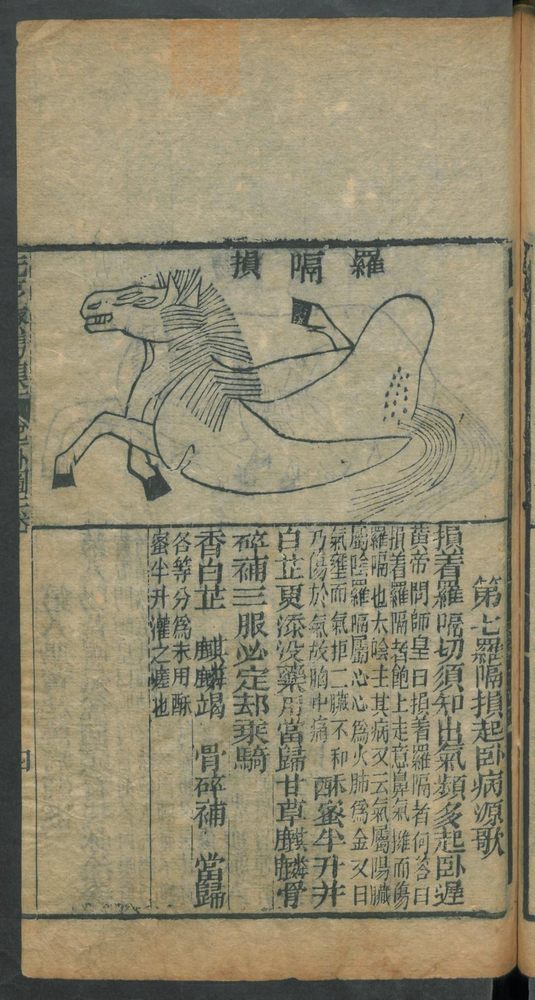 羅嗝損
第七羅隔損起卧病源歌
損着羅嗝切須知出氣頻多起卧遲
黄帝問師皇曰損着羅隔者何答曰
損着羅隔者飽上走急鼻氣擁而傷
羅嗝也太陰主其病又云氣屬陽臟
屬陰羅嗝屬心心爲火肺爲金又曰
氣壅而氣拒二臟不和
乃傷於氣故胸中痛
酥蜜半升并
白芷更添没藥用當歸甘草麒麟骨
碎補三服必定却乗騎
香白芷 麒麟竭 骨碎補 當歸
各等分爲末用酥
蜜半升灌之瘥也
四